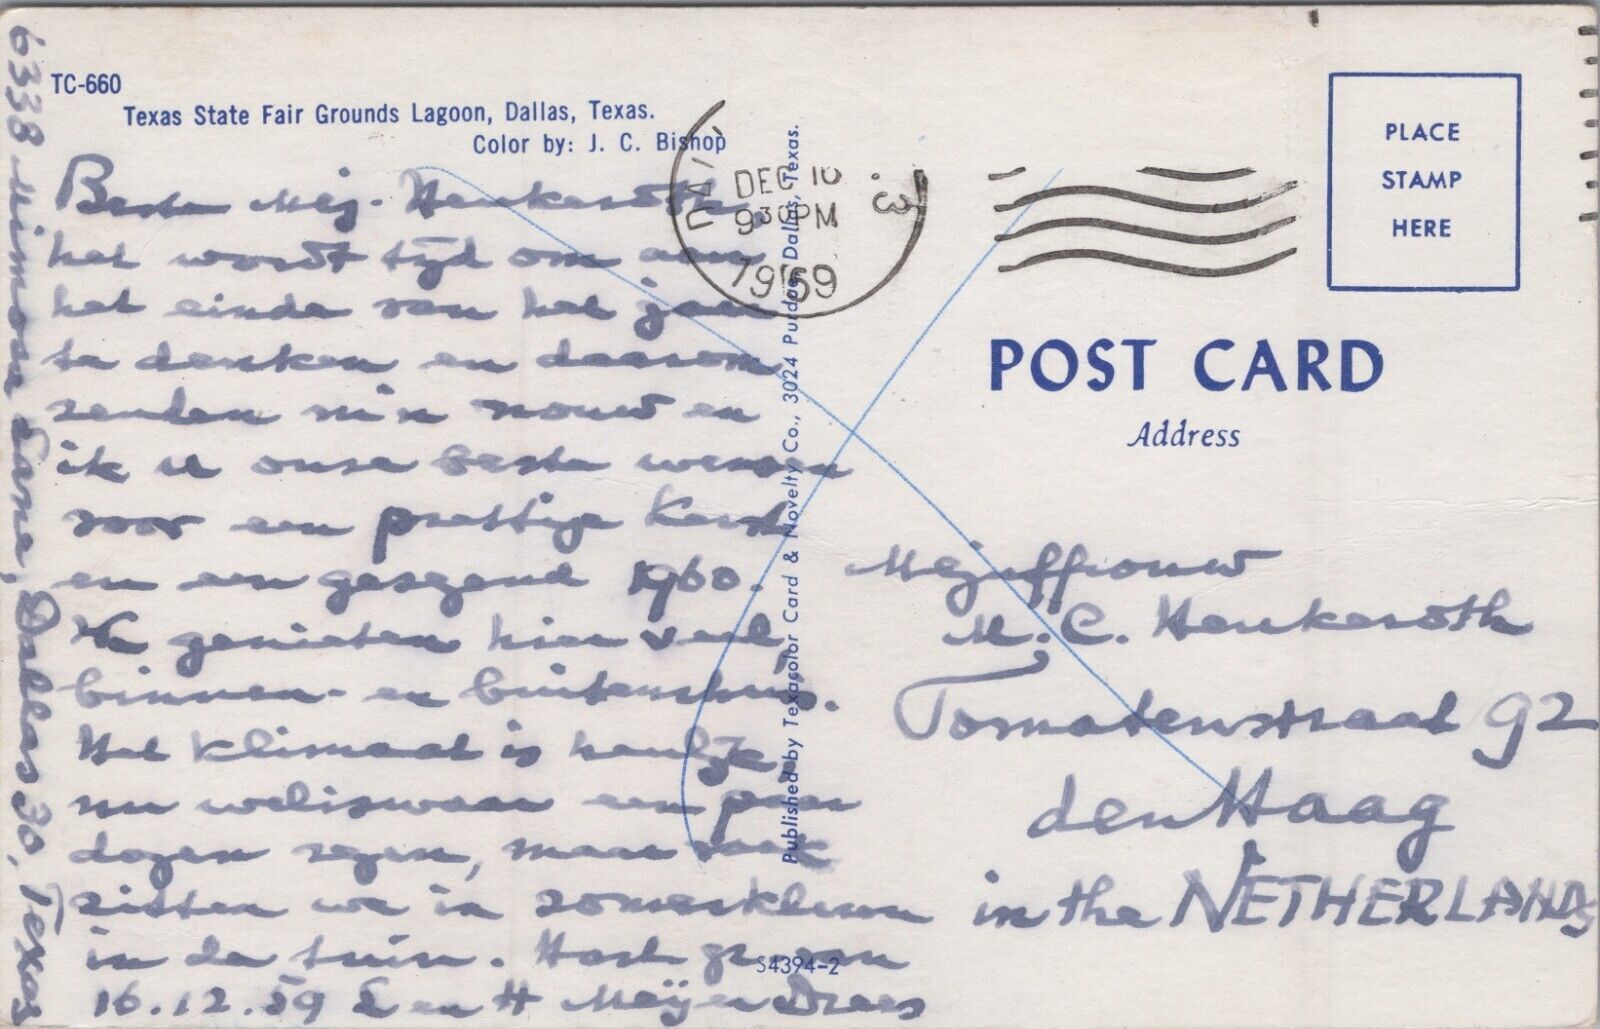 TC-660
Texas State Fair Grounds Lagoon, Dallas, Texas.
Color by: J. C. Bishop
Beste Mej. Henkeroth,
het wordt tijd om aan
het einde van het jaar
te denken en daarom
zenden m'n vrouw en
ik u onze beste wensen
voor een prettige Kerst
en een gezegend 1960.
We genieten hier veel,
binnen- en buitenshuis.
Het klimaat is heerlijk,
nu weliswaar een paar
dagen regen, maar vaak
zitten we in zomerkleren
in de tuin. Hart. groeten
16.12.59 E en H Meijer Drees
6338 Mimosa Lane, Dallas 30, Texas
DEC 16
930 PM
1959
Published by Texacolor Card & Novelty Co., 3024 Purdue, Dallas, Texas.
S4394-2
PLACE
STAMP
HERE
POST CARD
Address
Mejuffrouw
M. C. Henkeroth
Tomatenstraat 92
den Haag
in the NETHERLANDS